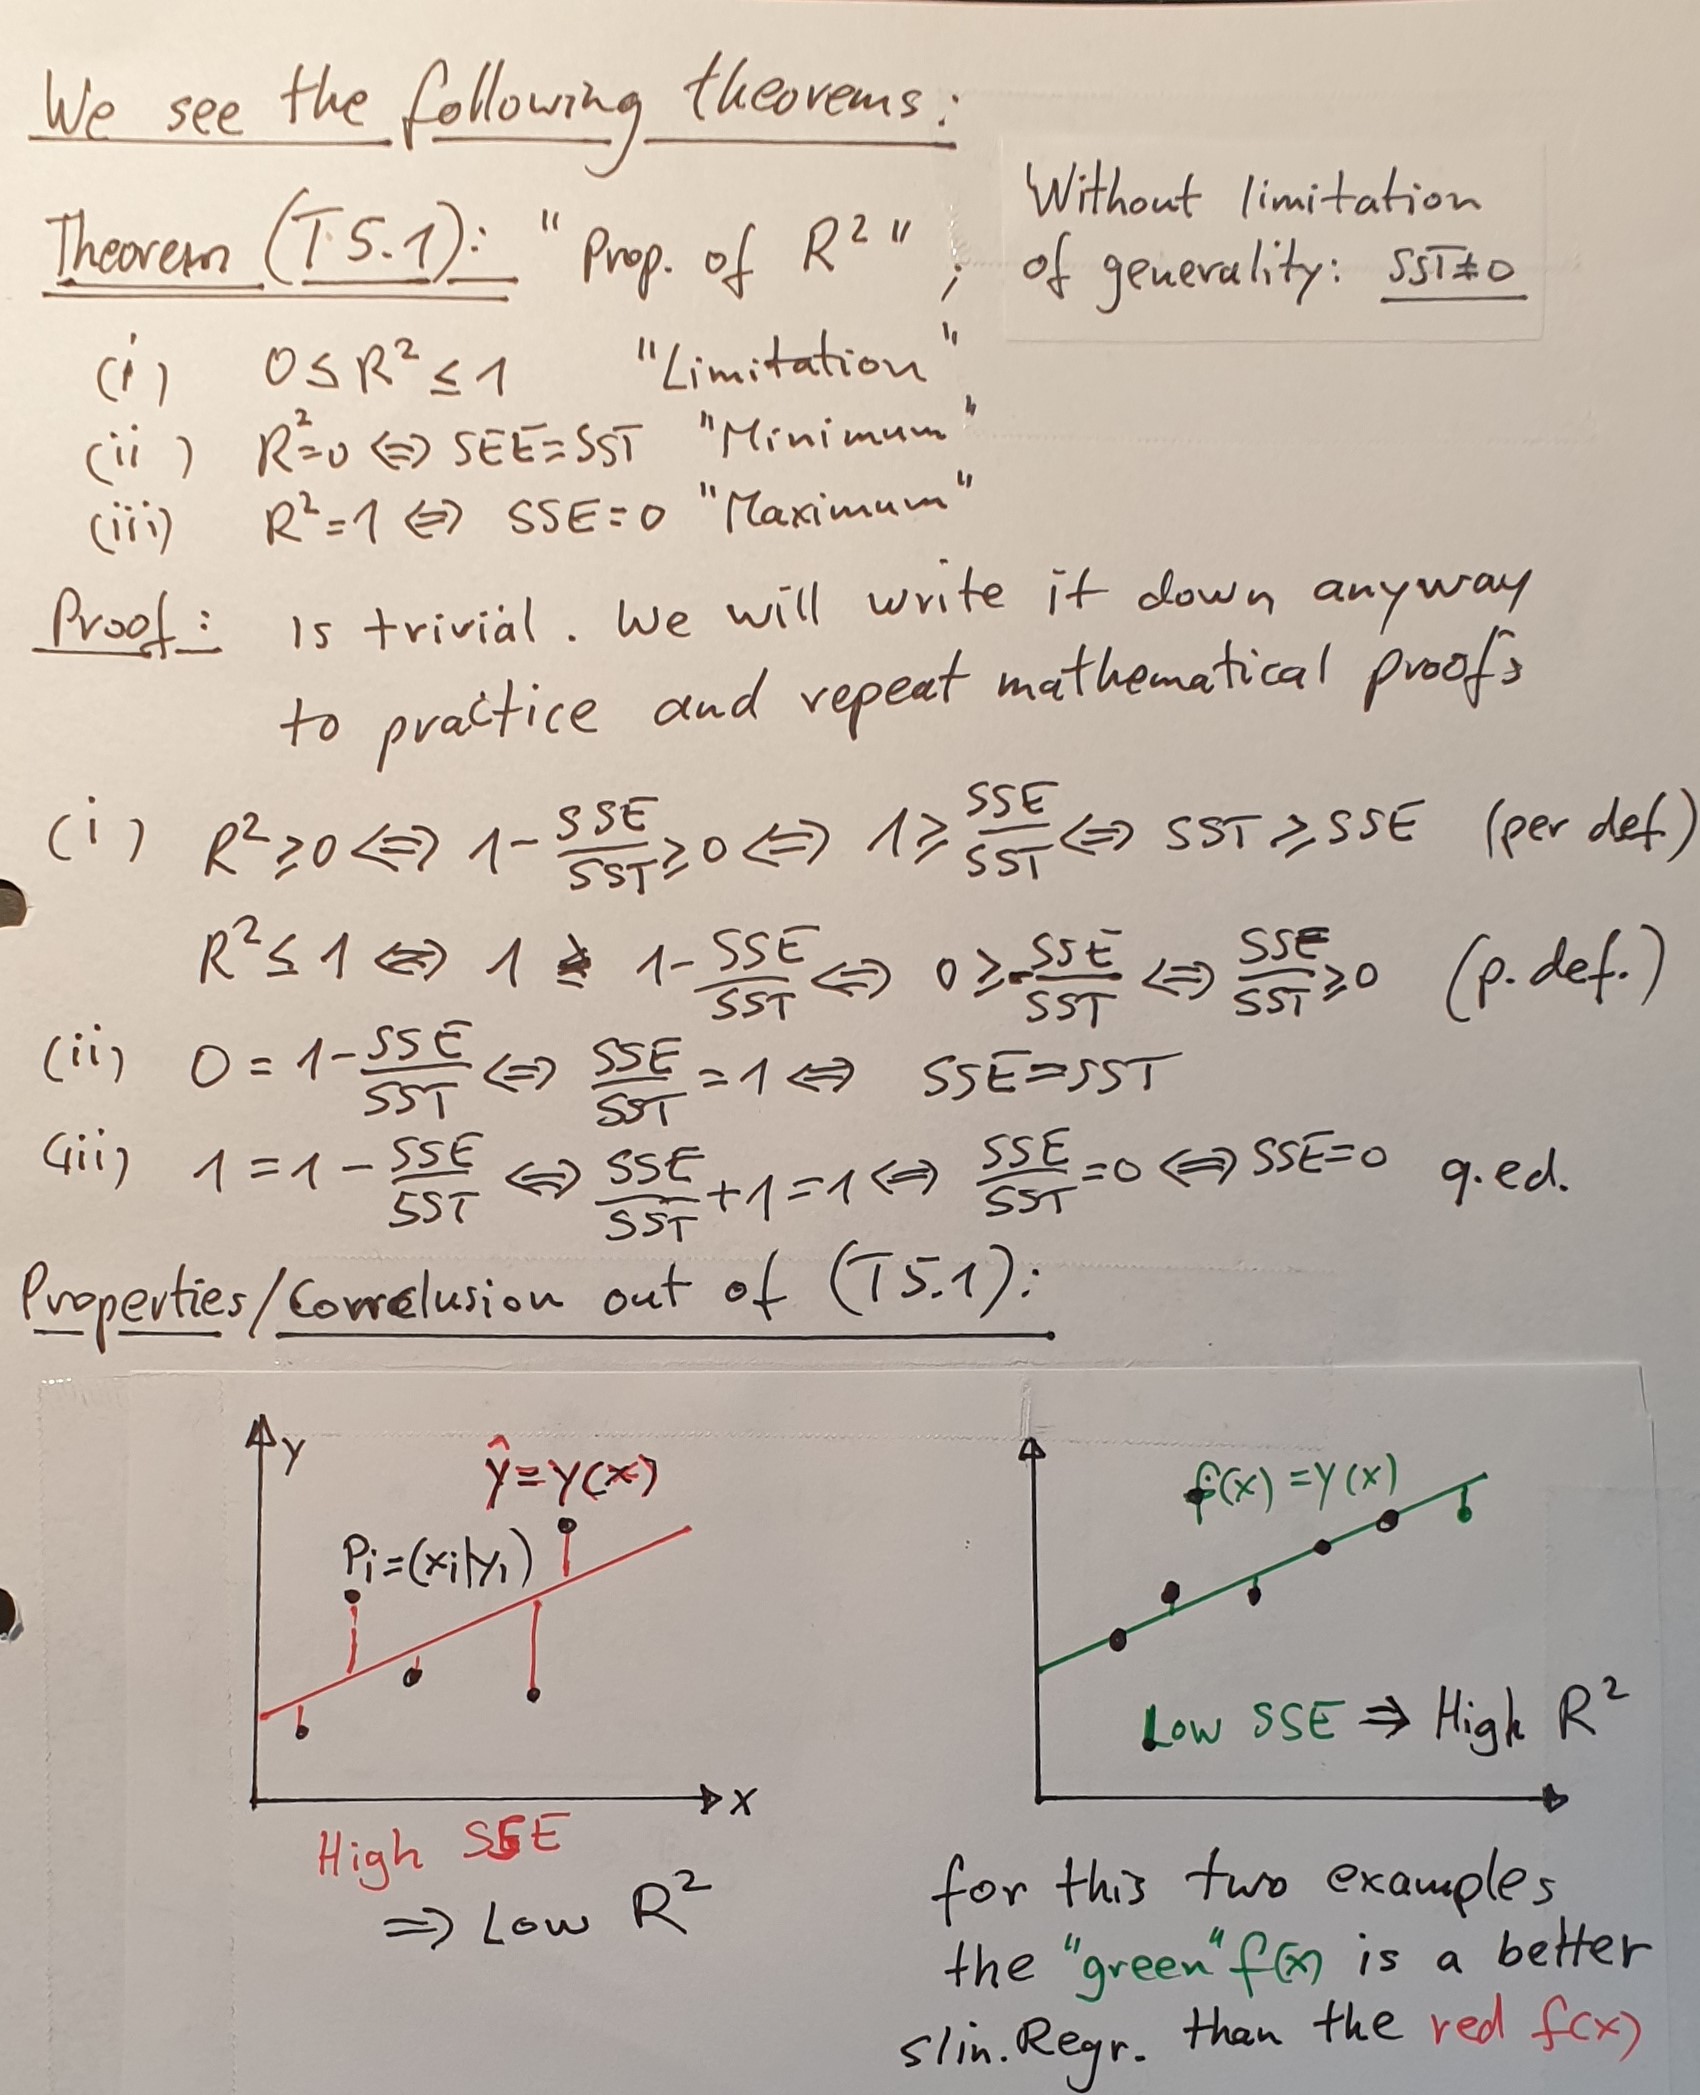 We see the following theorems:
Theorem (T5.1): "Prop. of R²" ; Without limitation
of generality: SST≠0
(i) 0 ≤ R² ≤ 1 "Limitation"
(ii) R²=0 ⇔ SEE=SST "Minimum"
(iii) R²=1 ⇔ SSE=0 "Maximum"
Proof: is trivial. We will write it down anyway
to practice and repeat mathematical proofs
(i) R²≥0 ⇔ 1-SSE/SST≥0 ⇔ 1≥SSE/SST ⇔ SST≥SSE (per def.)
R²≤1 ⇔ 1 ≥ 1-SSE/SST ⇔ 0≥-SSE/SST ⇔ SSE/SST≥0 (p. def.)
(ii) 0=1-SSE/SST ⇔ SSE/SST=1 ⇔ SSE=SST
(iii) 1=1-SSE/SST ⇔ SSE/SST+1=1 ⇔ SSE/SST=0 ⇔ SSE=0 q.ed.
Properties/Conclusion out of (T5.1):
y
ŷ=y(x)
Pi=(xi|yi)
x
High SSE
⇒ Low R²
f(x)=y(x)
Low SSE ⇒ High R²
for this two examples
the "green" f(x) is a better
slin. Regr. than the red f(x)